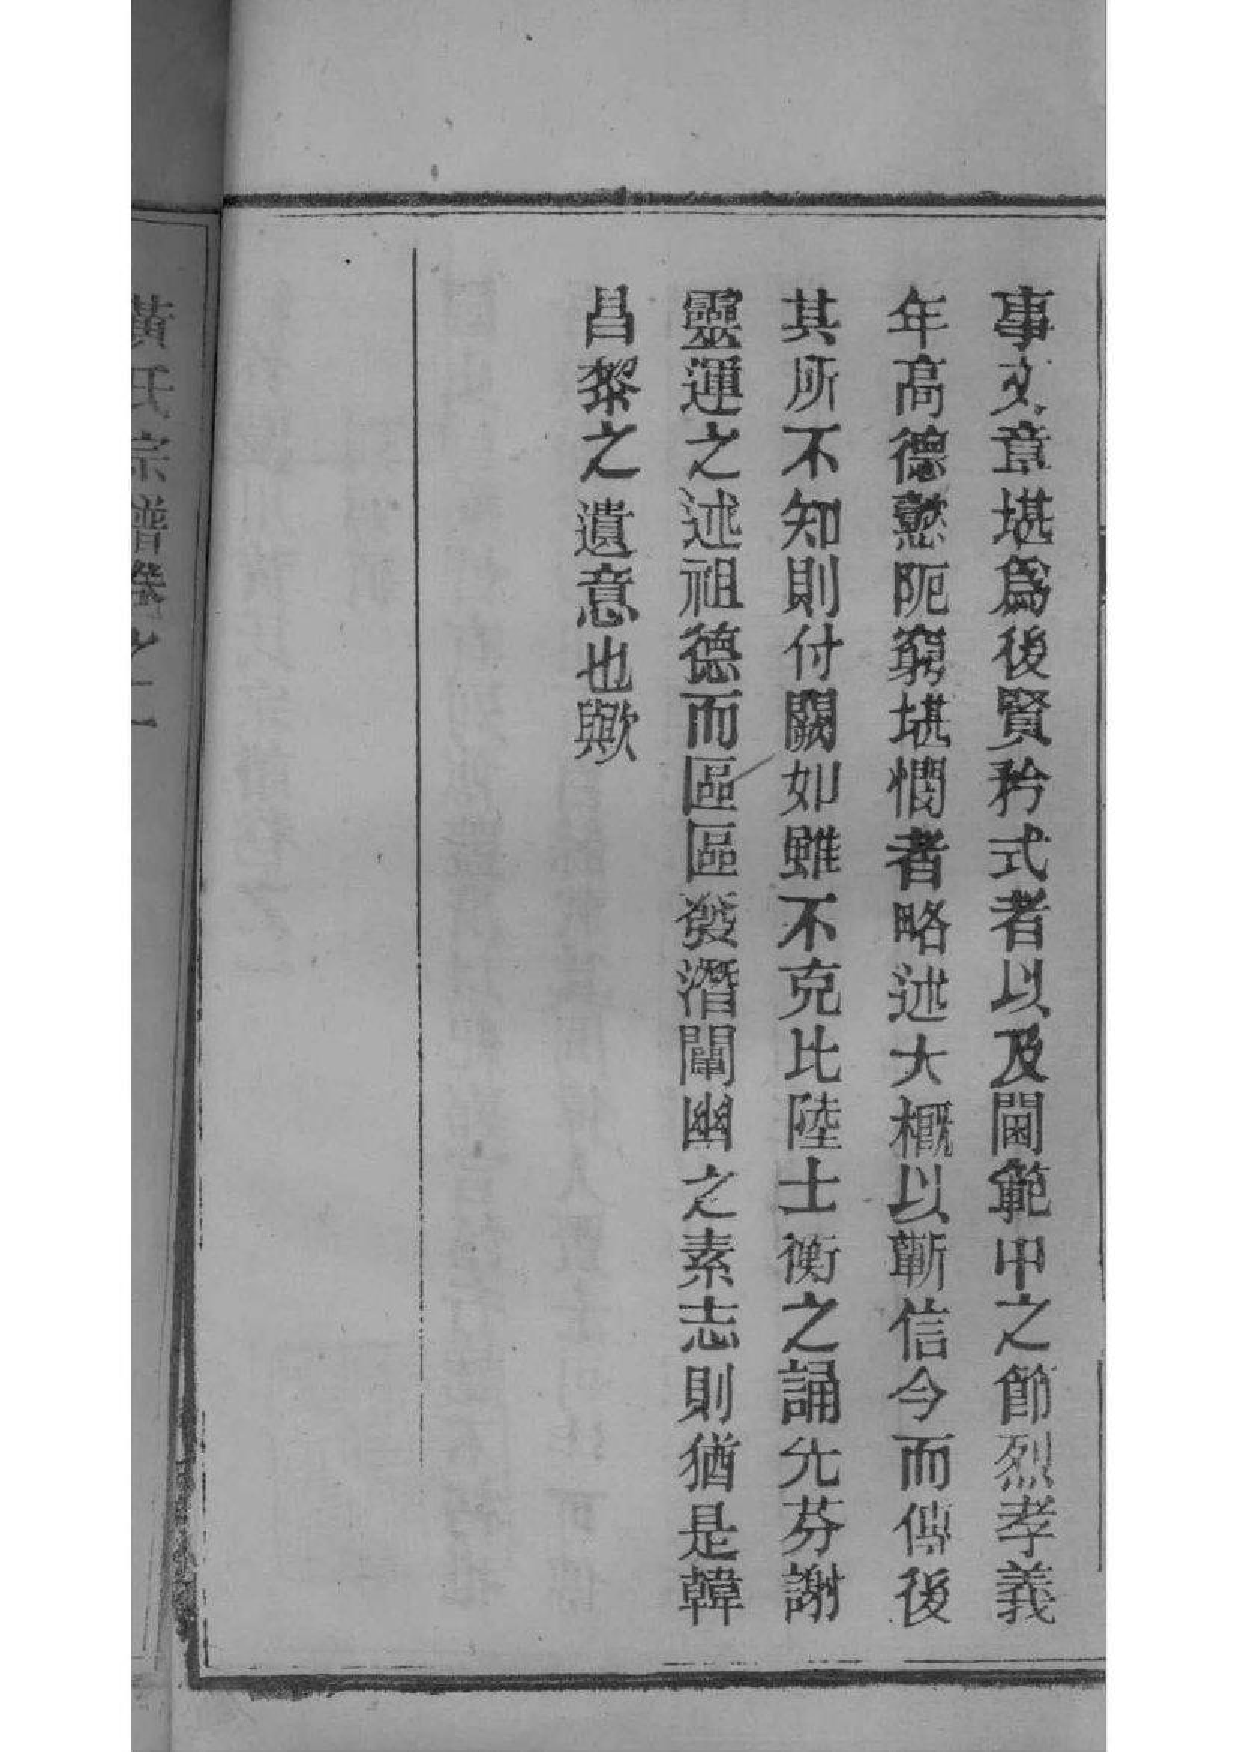 事文章堪爲後賢矜式者以及閫範中之節烈孝義
年高德懿阨窮堪憫者略述大概以蘄信今而傳後
其所不知則付闕如雖不克比陸士衡之誦先芬謝
靈運之述祖德而區區發潛闡幽之素志則猶是韓
昌黎之遺意也歟
黃氏宗譜卷之二